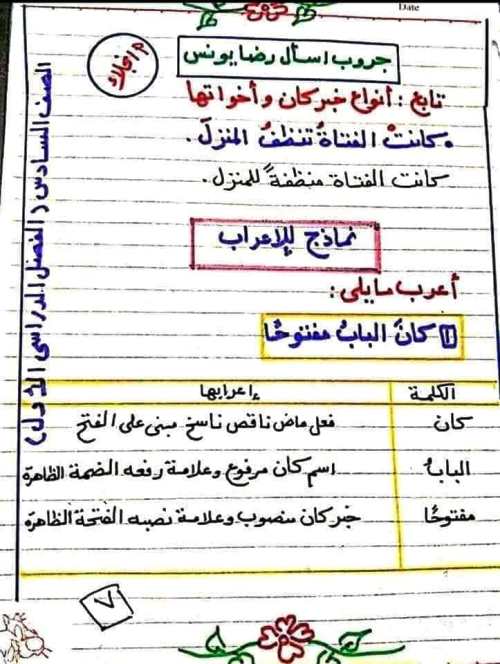 Date
جروب اسأل رضا يونس
م اجلاء
تابع : أنواع خبر كان وأخواتها
• كانتْ الفتاةُ تنظفُ المنزلَ .
كانت الفتاة منظفةً للمنزل .
نماذج للإعراب
أعرب مايلى :
١ كانَ البابُ مفتوحًا
الكلمة إعرابها
كان فعل ماض ناقص ناسخ مبنى على الفتح
البابُ اسم كان مرفوع وعلامة رفعه الضمة الظاهرة
مفتوحًا خبر كان منصوب وعلامة نصبه الفتحة الظاهرة
٧
الصف السادس ( الفصل الدراسى الأول )